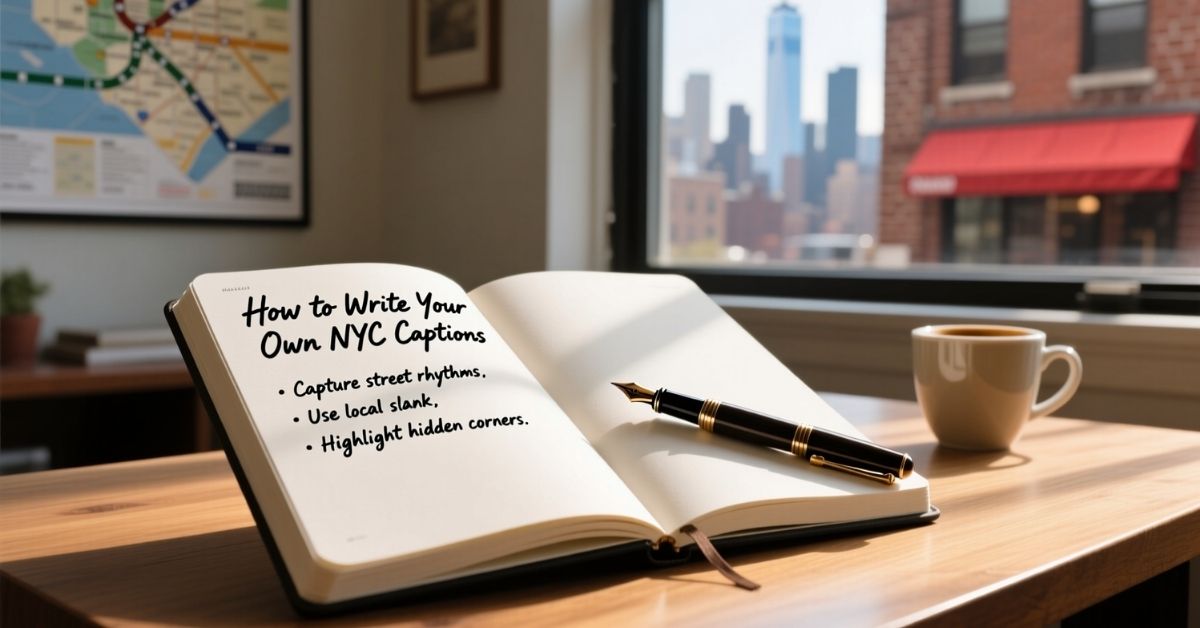 How to Write Your
Own NYC Captions
• Capture street rhythms.
• Use local slank,
• Highlight hidden corners.